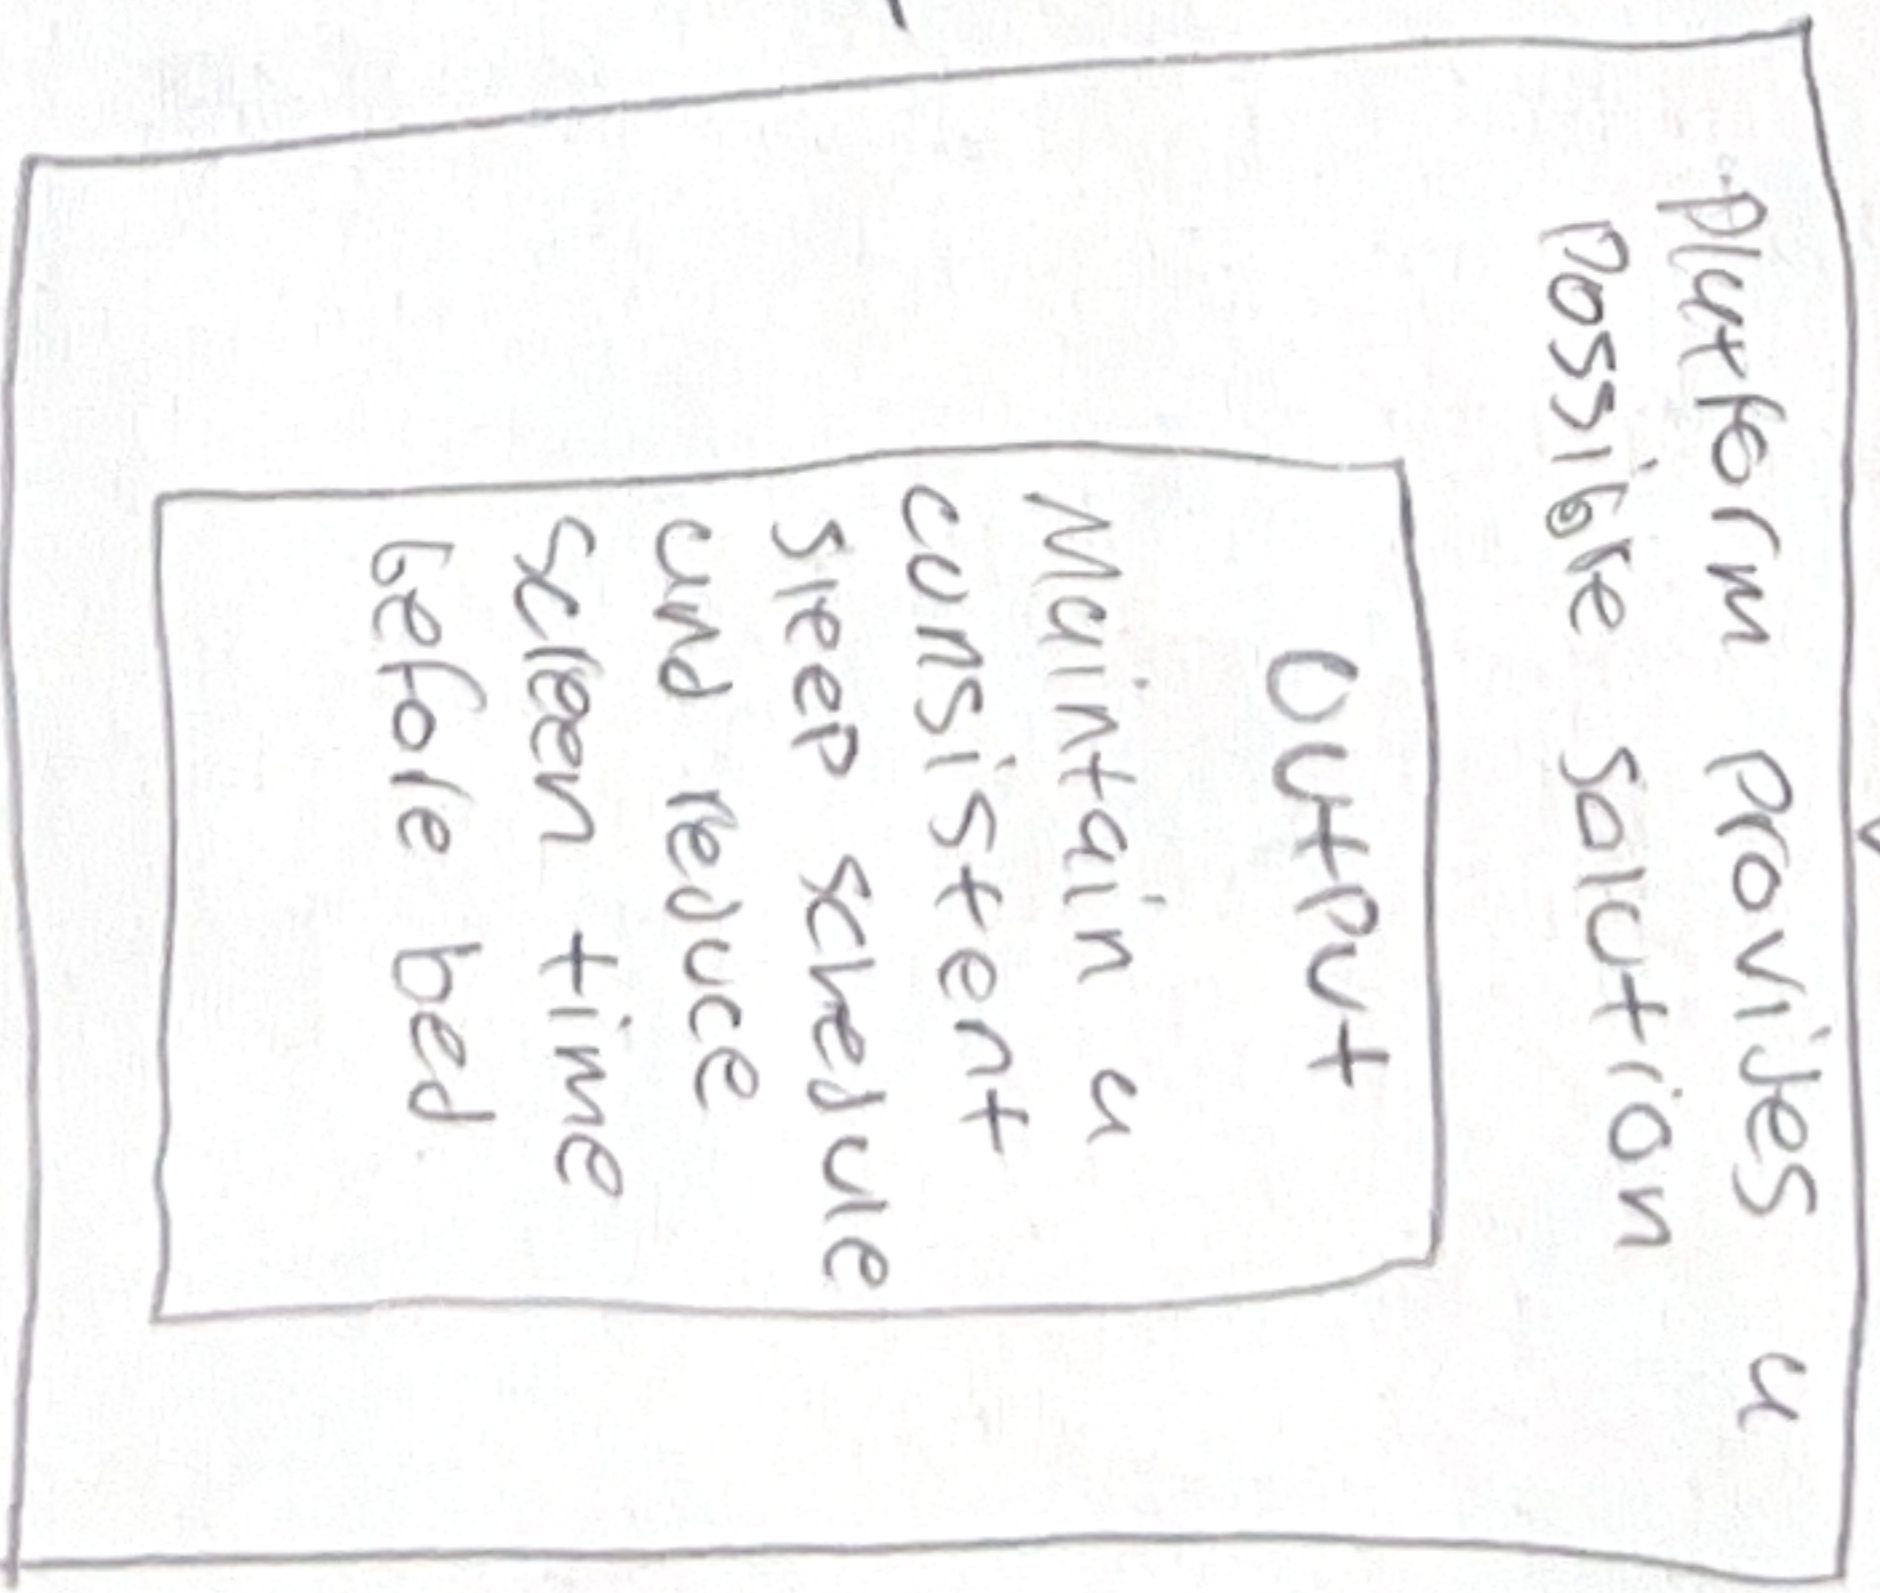 Platform provides a
possible solution
Output
Maintain a
consistent
sleep schedule
and reduce
screen time
before bed